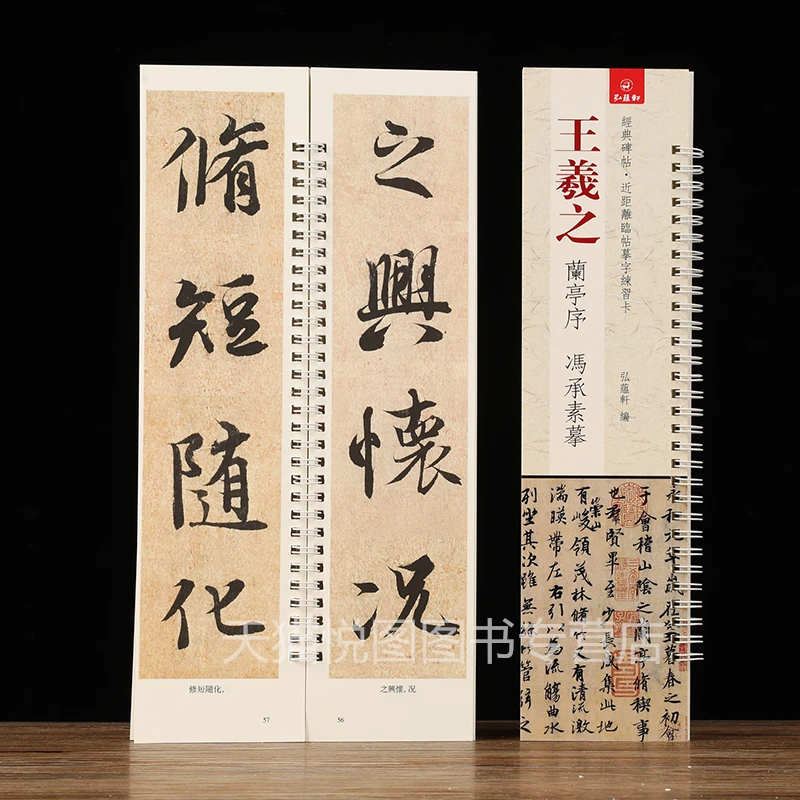 之興懷况
之興懷，况
56
脩短随化
修短隨化，
57
弘蘊軒
經典碑帖·近距離臨帖摹字練習卡
弘蘊軒 編
王羲之
蘭亭序 馮承素摹
永和九年歲在癸丑暮春之初會
于會稽山陰之蘭亭脩稧事
也群賢畢至少長咸集此地
有崇山峻領茂林脩竹又有清流激
湍暎帶左右引以為流觴曲水
列坐其次雖無絲竹管弦之
天猫悦图图书专营店